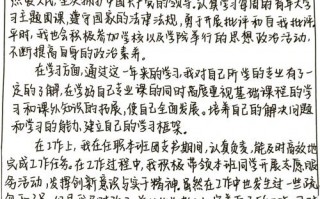 热爱人民,坚决拥护中国共产党的领导。认真学习每期的青年大学
习主题团课,遵守国家的法律法规,勇于开展批评和自我批评
平时,我也会积极参加学校以及学院举行的思想政治活动,
不断提高自身的政治素养。
在学习方面,通过这一年来的学习,我对自己所学的专业有了一
定的了解,在学好自己专业课的同时高度重视基础课程的学
习和课外知识的拓展,使自己全面发展。培养自己的解决问题
和学习的能力,建立自己的学习框架。
在工作上,我在任职本班团支书期间,认真负责,能及时高效地
完成工作任务。在工作过程中,我积极带领本班同学开展志愿服
务活动,发挥创新意识与实干精神,虽然在工作中也发生过一些疏